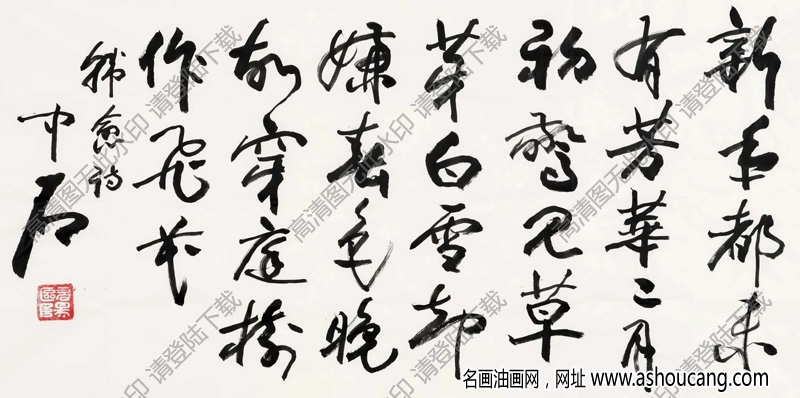 新年都未
有芳華二月
初驚见草
芽白雪却
嫌春色晚
故穿庭樹
作飛花
韩愈诗
中石
高清图无此水印 请登陆下载
名画油画网，网址 www.ashoucang.com